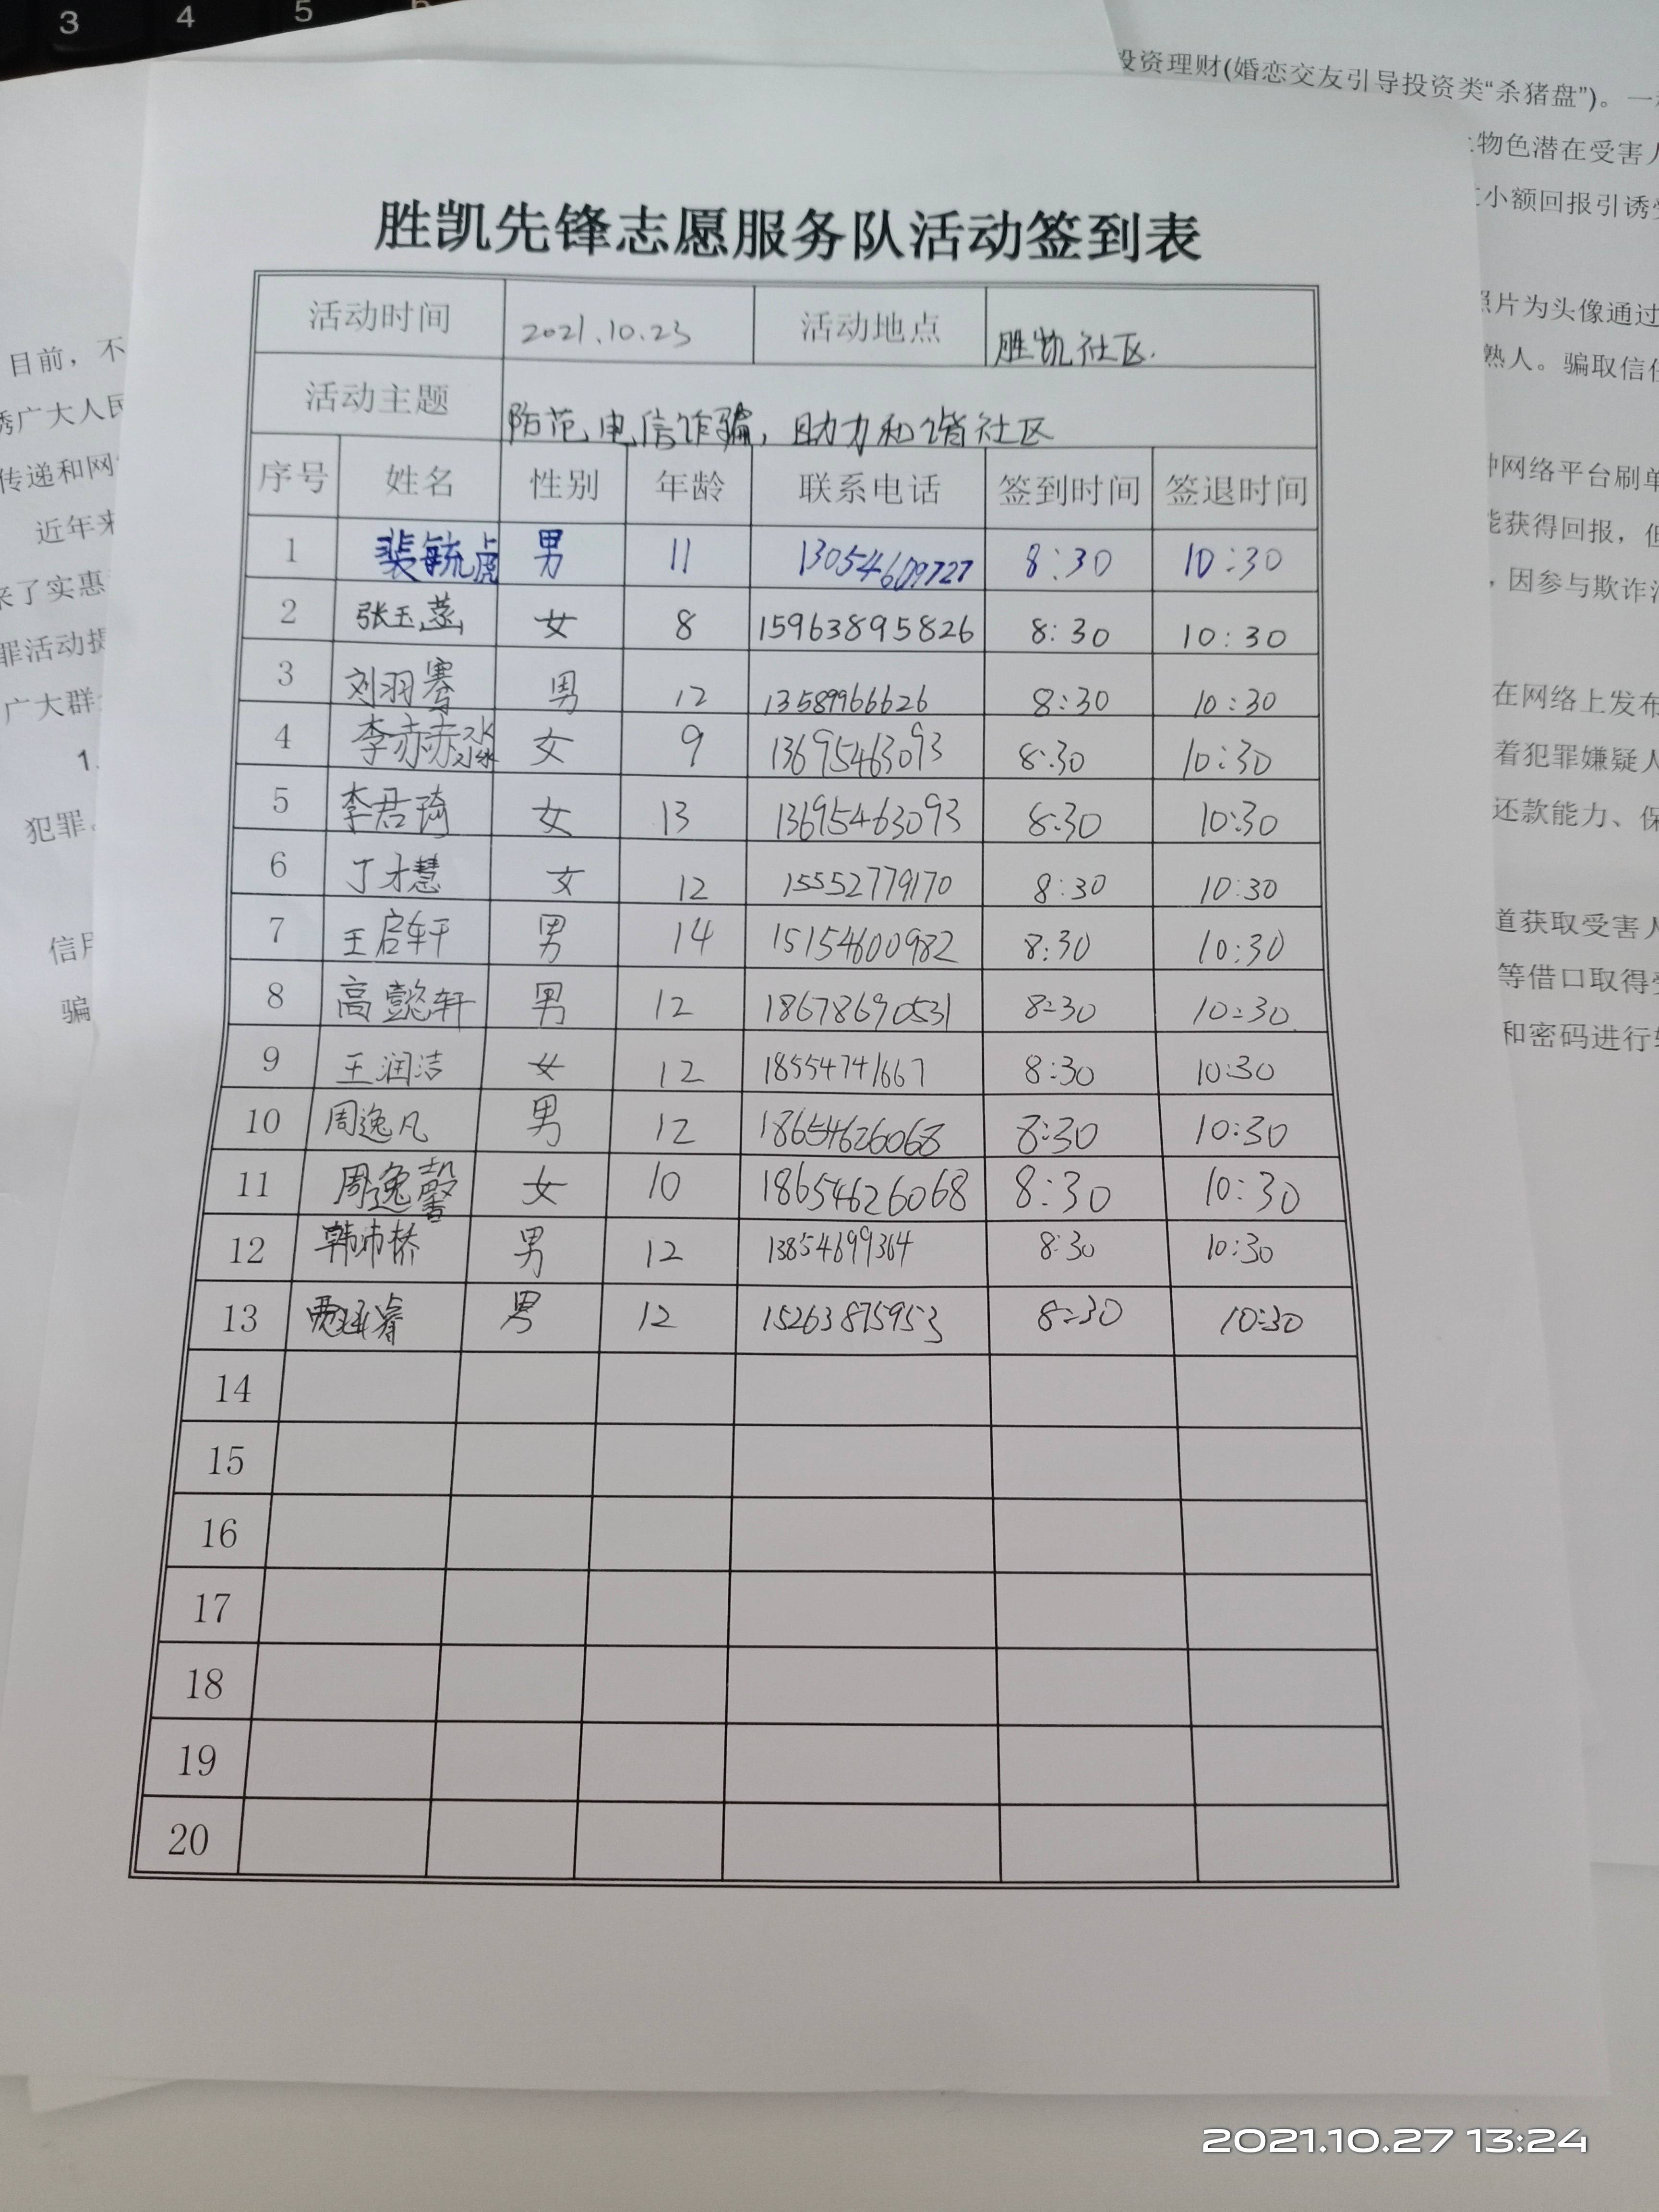 3 4 5
投资理财(婚恋交友引导投资类“杀猪盘”)。一
物色潜在受害人
小额回报引诱
照片为头像通过
熟人。骗取信任
网络平台刷单
能获得回报，但
，因参与欺诈
在网络上发布
着犯罪嫌疑人
还款能力、保
道获取受害人
等借口取得
和密码进行
目前，不
诱广大人民
传递和网
近年来
来了实惠
罪活动
广大群
1.
犯罪
信用
骗
胜凯先锋志愿服务队活动签到表
活动时间 2021.10.23 活动地点 胜凯社区.
活动主题 防范电信诈骗，助力和谐社区
序号 姓名 性别 年龄 联系电话 签到时间 签退时间
1 裴毓虎 男 11 13054609727 8:30 10:30
2 张玉 女 8 15963895826 8:30 10:30
3 刘羽骞 男 12 13589966626 8:30 10:30
4 李赤赤 女 9 13695463093 8:30 10:30
5 李君琦 女 13 13695463093 8:30 10:30
6 丁才慧 女 12 15552779170 8:30 10:30
7 王启轩 男 14 15154600982 8:30 10:30
8 高懿轩 男 12 18678690531 8:30 10:30
9 王润洁 女 12 18554741667 8:30 10:30
10 周逸凡 男 12 18654626068 8:30 10:30
11 周逸馨 女 10 18654626068 8:30 10:30
12 韩沛桥 男 12 13854699364 8:30 10:30
13 贾 睿 男 12 15263875953 8:30 10:30
14
15
16
17
18
19
20
2021.10.27 13:24